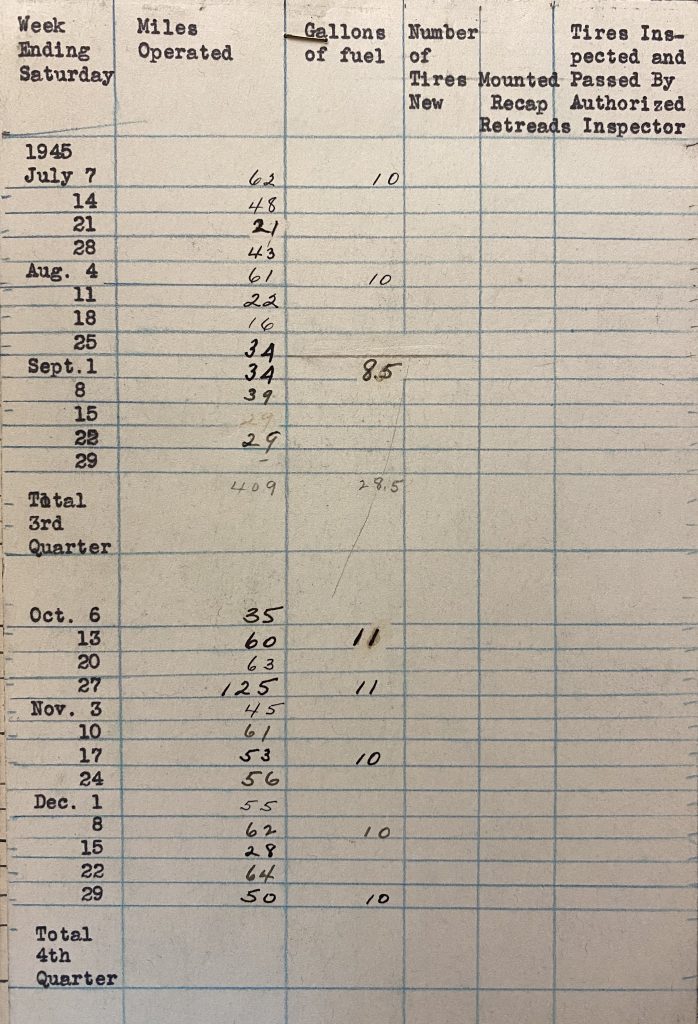 Week Miles Gallons Number Tires Ins-
Ending Operated of fuel of pected and
Saturday Tires Mounted Passed By
New Recap Authorized
Retreads Inspector
1945
July 7 62 10
14 48
21 21
28 43
Aug. 4 61 10
11 22
18 16
25 34
Sept.1 34 8.5
8 39
15 29
22 29
29 -
409 28.5
Total
3rd
Quarter
Oct. 6 35
13 60 11
20 63
27 125 11
Nov. 3 45
10 61
17 53 10
24 56
Dec. 1 55
8 62 10
15 28
22 64
29 50 10
Total
4th
Quarter